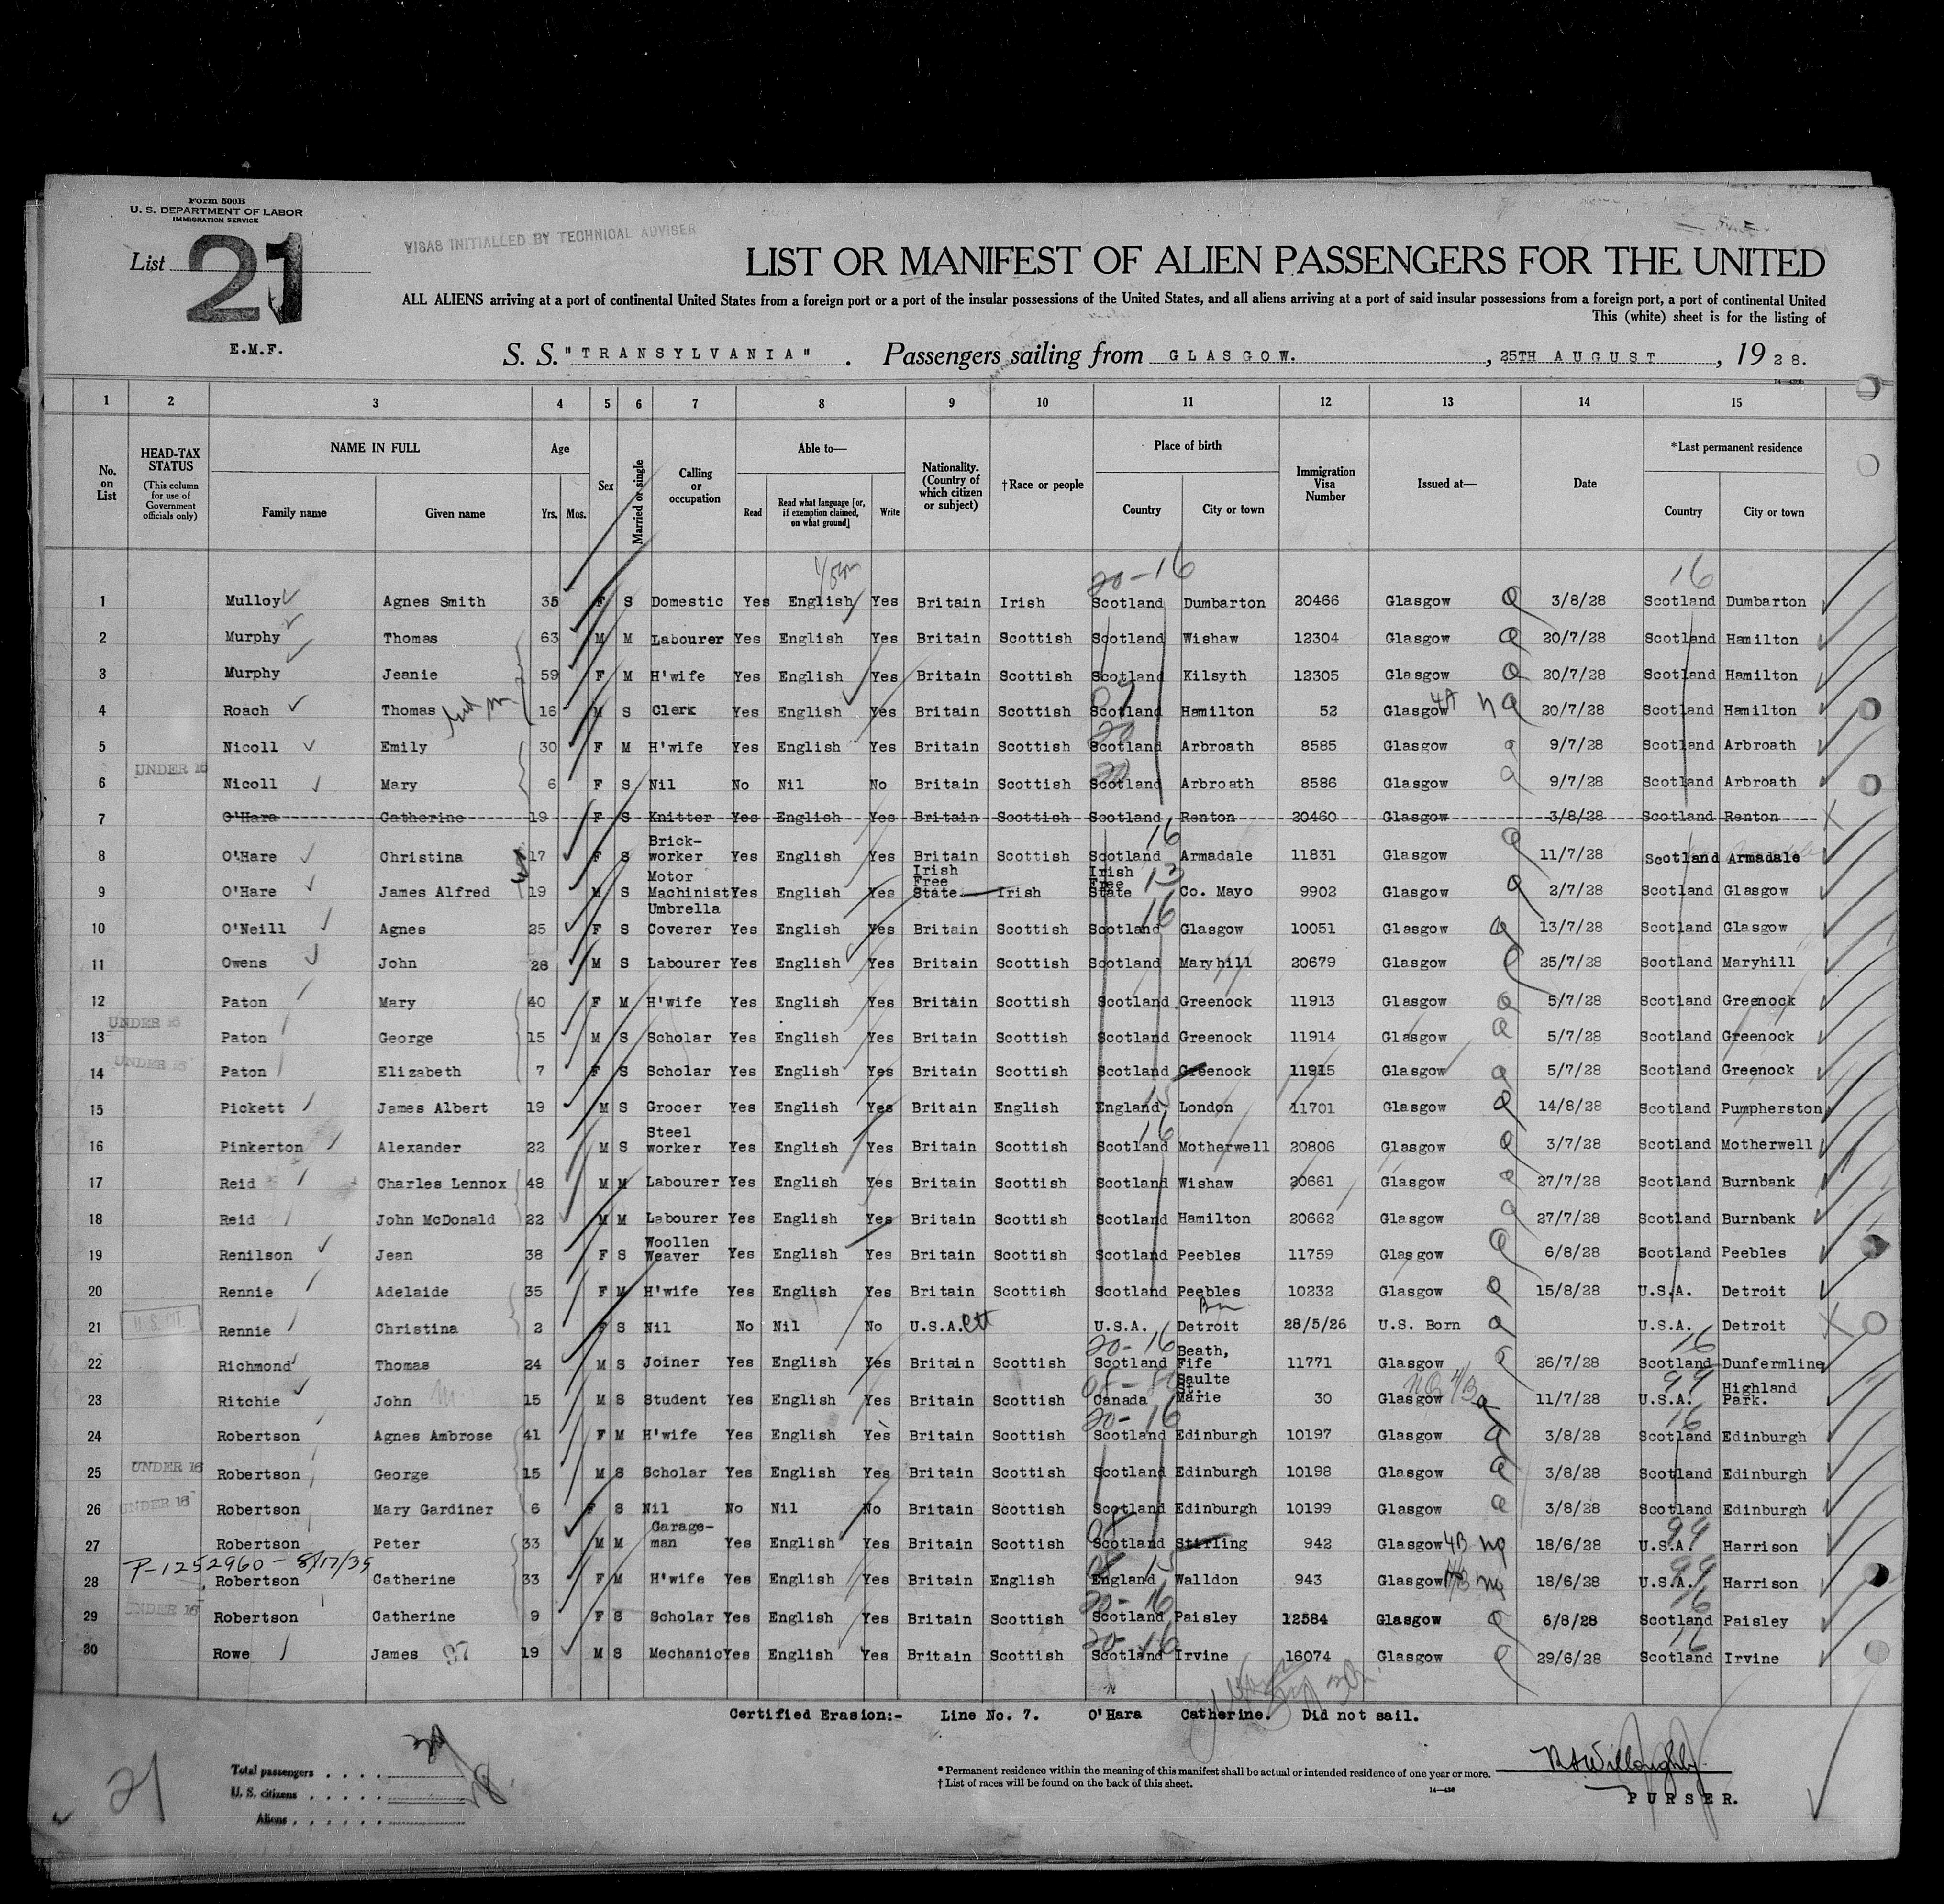 Form 500B
U. S. DEPARTMENT OF LABOR
IMMIGRATION SERVICE
List 21
VISAS INITIALLED BY TECHNICAL ADVISER
LIST OR MANIFEST OF ALIEN PASSENGERS FOR THE UNITED
ALL ALIENS arriving at a port of continental United States from a foreign port or a port of the insular possessions of the United States, and all aliens arriving at a port of said insular possessions from a foreign port, a port of continental United
This (white) sheet is for the listing of
E.M.F.
S. S. "TRANSYLVANIA". Passengers sailing from GLASGOW. , 25TH AUGUST , 1928.
1 2 3 4 5 6 7 8 9 10 11 12 13 14 15
No. on List
HEAD-TAX STATUS
(This column for use of Government officials only)
NAME IN FULL
Family name Given name
Age
Yrs. Mos.
Sex
Married or single
Calling or occupation
Able to—
Read
Read what language [or, if exemption claimed, on what ground]
Write
Nationality. (Country of which citizen or subject)
†Race or people
Place of birth
Country City or town
Immigration Visa Number
Issued at—
Date
*Last permanent residence
Country City or town
20-16 16
1 Mulloy Agnes Smith 35 F S Domestic Yes English Yes Britain Irish Scotland Dumbarton 20466 Glasgow 3/8/28 Scotland Dumbarton
2 Murphy Thomas 63 M M Labourer Yes English Yes Britain Scottish Scotland Wishaw 12304 Glasgow 20/7/28 Scotland Hamilton
3 Murphy Jeanie 59 F M H'wife Yes English Yes Britain Scottish Scotland Kilsyth 12305 Glasgow 20/7/28 Scotland Hamilton
4 Roach Thomas 16 M S Clerk Yes English Yes Britain Scottish Scotland Hamilton 52 Glasgow 20/7/28 Scotland Hamilton
5 Nicoll Emily 30 F M H'wife Yes English Yes Britain Scottish Scotland Arbroath 8585 Glasgow 9/7/28 Scotland Arbroath
UNDER 16
6 Nicoll Mary 6 F S Nil No Nil No Britain Scottish Scotland Arbroath 8586 Glasgow 9/7/28 Scotland Arbroath
7 O'Hara Catherine 19 F S Knitter Yes English Yes Britain Scottish Scotland Renton 20460 Glasgow 3/8/28 Scotland Renton
8 O'Hare Christina 17 F S Brick-worker Yes English Yes Britain Scottish Scotland Armadale 11831 Glasgow 11/7/28 Scotland Armadale
9 O'Hare James Alfred 19 M S Motor Machinist Yes English Yes Irish Free State Irish Irish Free State Co. Mayo 9902 Glasgow 2/7/28 Scotland Glasgow
10 O'Neill Agnes 25 F S Umbrella Coverer Yes English Yes Britain Scottish Scotland Glasgow 10051 Glasgow 13/7/28 Scotland Glasgow
11 Owens John 28 M S Labourer Yes English Yes Britain Scottish Scotland Maryhill 20679 Glasgow 25/7/28 Scotland Maryhill
12 Paton Mary 40 F M H'wife Yes English Yes Britain Scottish Scotland Greenock 11913 Glasgow 5/7/28 Scotland Greenock
UNDER 16
13 Paton George 15 M S Scholar Yes English Yes Britain Scottish Scotland Greenock 11914 Glasgow 5/7/28 Scotland Greenock
UNDER 16
14 Paton Elizabeth 7 F S Scholar Yes English Yes Britain Scottish Scotland Greenock 11915 Glasgow 5/7/28 Scotland Greenock
15 Pickett James Albert 19 M S Grocer Yes English Yes Britain English England London 11701 Glasgow 14/8/28 Scotland Pumpherston
16 Pinkerton Alexander 22 M S Steel worker Yes English Yes Britain Scottish Scotland Motherwell 20806 Glasgow 3/7/28 Scotland Motherwell
17 Reid Charles Lennox 48 M M Labourer Yes English Yes Britain Scottish Scotland Wishaw 20661 Glasgow 27/7/28 Scotland Burnbank
18 Reid John McDonald 22 M M Labourer Yes English Yes Britain Scottish Scotland Hamilton 20662 Glasgow 27/7/28 Scotland Burnbank
19 Renilson Jean 38 F S Woollen Weaver Yes English Yes Britain Scottish Scotland Peebles 11759 Glasgow 6/8/28 Scotland Peebles
20 Rennie Adelaide 35 F M H'wife Yes English Yes Britain Scottish Scotland Peebles 10232 Glasgow 15/8/28 U.S.A. Detroit
21 Rennie Christina 2 F S Nil No Nil No U.S.A. U.S.A. Detroit 28/5/26 U.S. Born U.S.A. Detroit
20-16 16
22 Richmond Thomas 24 M S Joiner Yes English Yes Britain Scottish Scotland Beath, Fife 11771 Glasgow 26/7/28 Scotland Dunfermline
99
23 Ritchie John 15 M S Student Yes English Yes Britain Scottish Canada Saulte St. Marie 30 Glasgow 11/7/28 U.S.A. Highland Park.
20-16 16
24 Robertson Agnes Ambrose 41 F M H'wife Yes English Yes Britain Scottish Scotland Edinburgh 10197 Glasgow 3/8/28 Scotland Edinburgh
UNDER 16
25 Robertson George 15 M S Scholar Yes English Yes Britain Scottish Scotland Edinburgh 10198 Glasgow 3/8/28 Scotland Edinburgh
UNDER 16
26 Robertson Mary Gardiner 6 F S Nil No Nil No Britain Scottish Scotland Edinburgh 10199 Glasgow 3/8/28 Scotland Edinburgh
27 Robertson Peter 33 M M Garage-man Yes English Yes Britain Scottish Scotland Stirling 942 Glasgow 4B 18/6/28 U.S.A. Harrison
P-1252960 - 8/17/39
28 Robertson Catherine 33 F M H'wife Yes English Yes Britain English England Walldon 943 Glasgow 18/6/28 U.S.A. Harrison
UNDER 16 20-16 16
29 Robertson Catherine 9 F S Scholar Yes English Yes Britain Scottish Scotland Paisley 12584 Glasgow 6/8/28 Scotland Paisley
20-16 16
30 Rowe James 97 19 M S Mechanic Yes English Yes Britain Scottish Scotland Irvine 16074 Glasgow 29/6/28 Scotland Irvine
Certified Erasion:- Line No. 7. O'Hara Catherine. Did not sail.
21
Total passengers
U. S. citizens
Aliens
* Permanent residence within the meaning of this manifest shall be actual or intended residence of one year or more.
† List of races will be found on the back of this sheet.
PURSER.